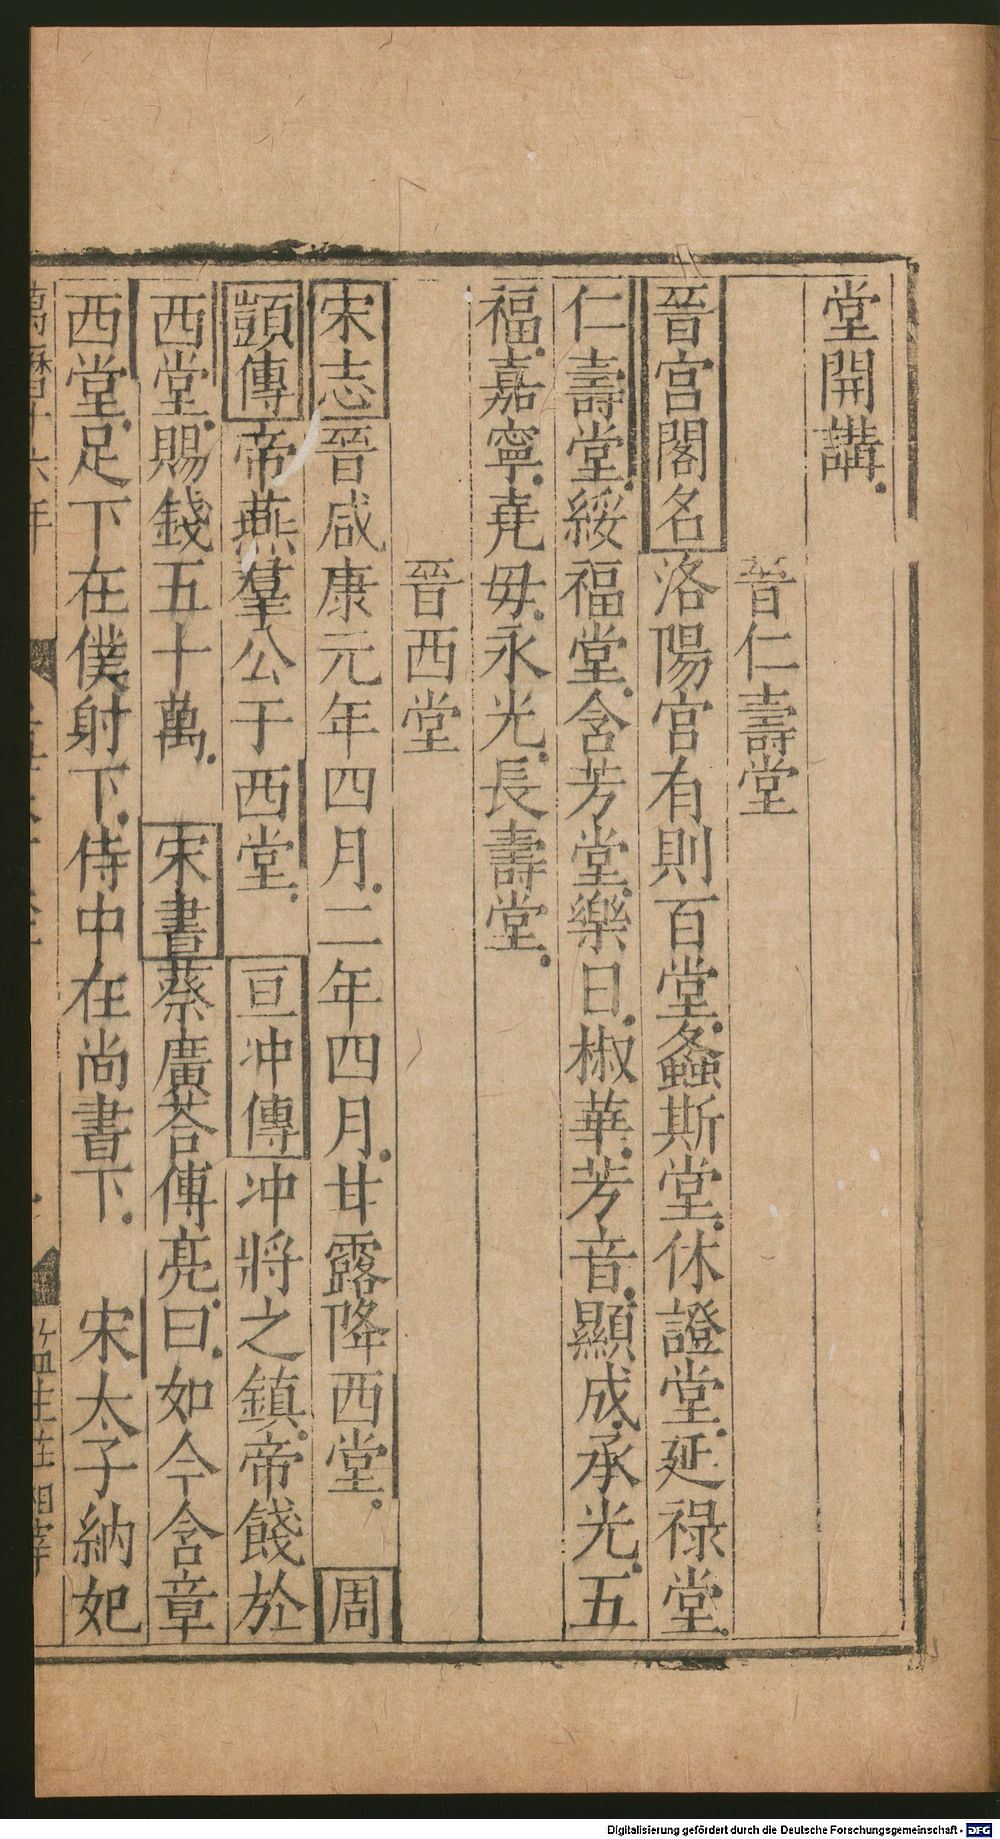 堂開講
晉仁壽堂
晉宮閣名洛陽宮有則百堂螽斯堂休證堂延祿堂
仁壽堂綏福堂含芳堂樂日椒華芳音顯成承光五
福嘉寧堯毋永光長壽堂
晉西堂
宋志晉咸康元年四月二年四月甘露降西堂 周
顗傳帝燕羣公于西堂 亘冲傳冲將之鎮帝餞於
西堂賜錢五十萬 宋書蔡廣荅傅亮曰如今含章
西堂足下在僕射下侍中在尚書下 宋太子納妃
Digitalisierung gefördert durch die Deutsche Forschungsgemeinschaft - DFG